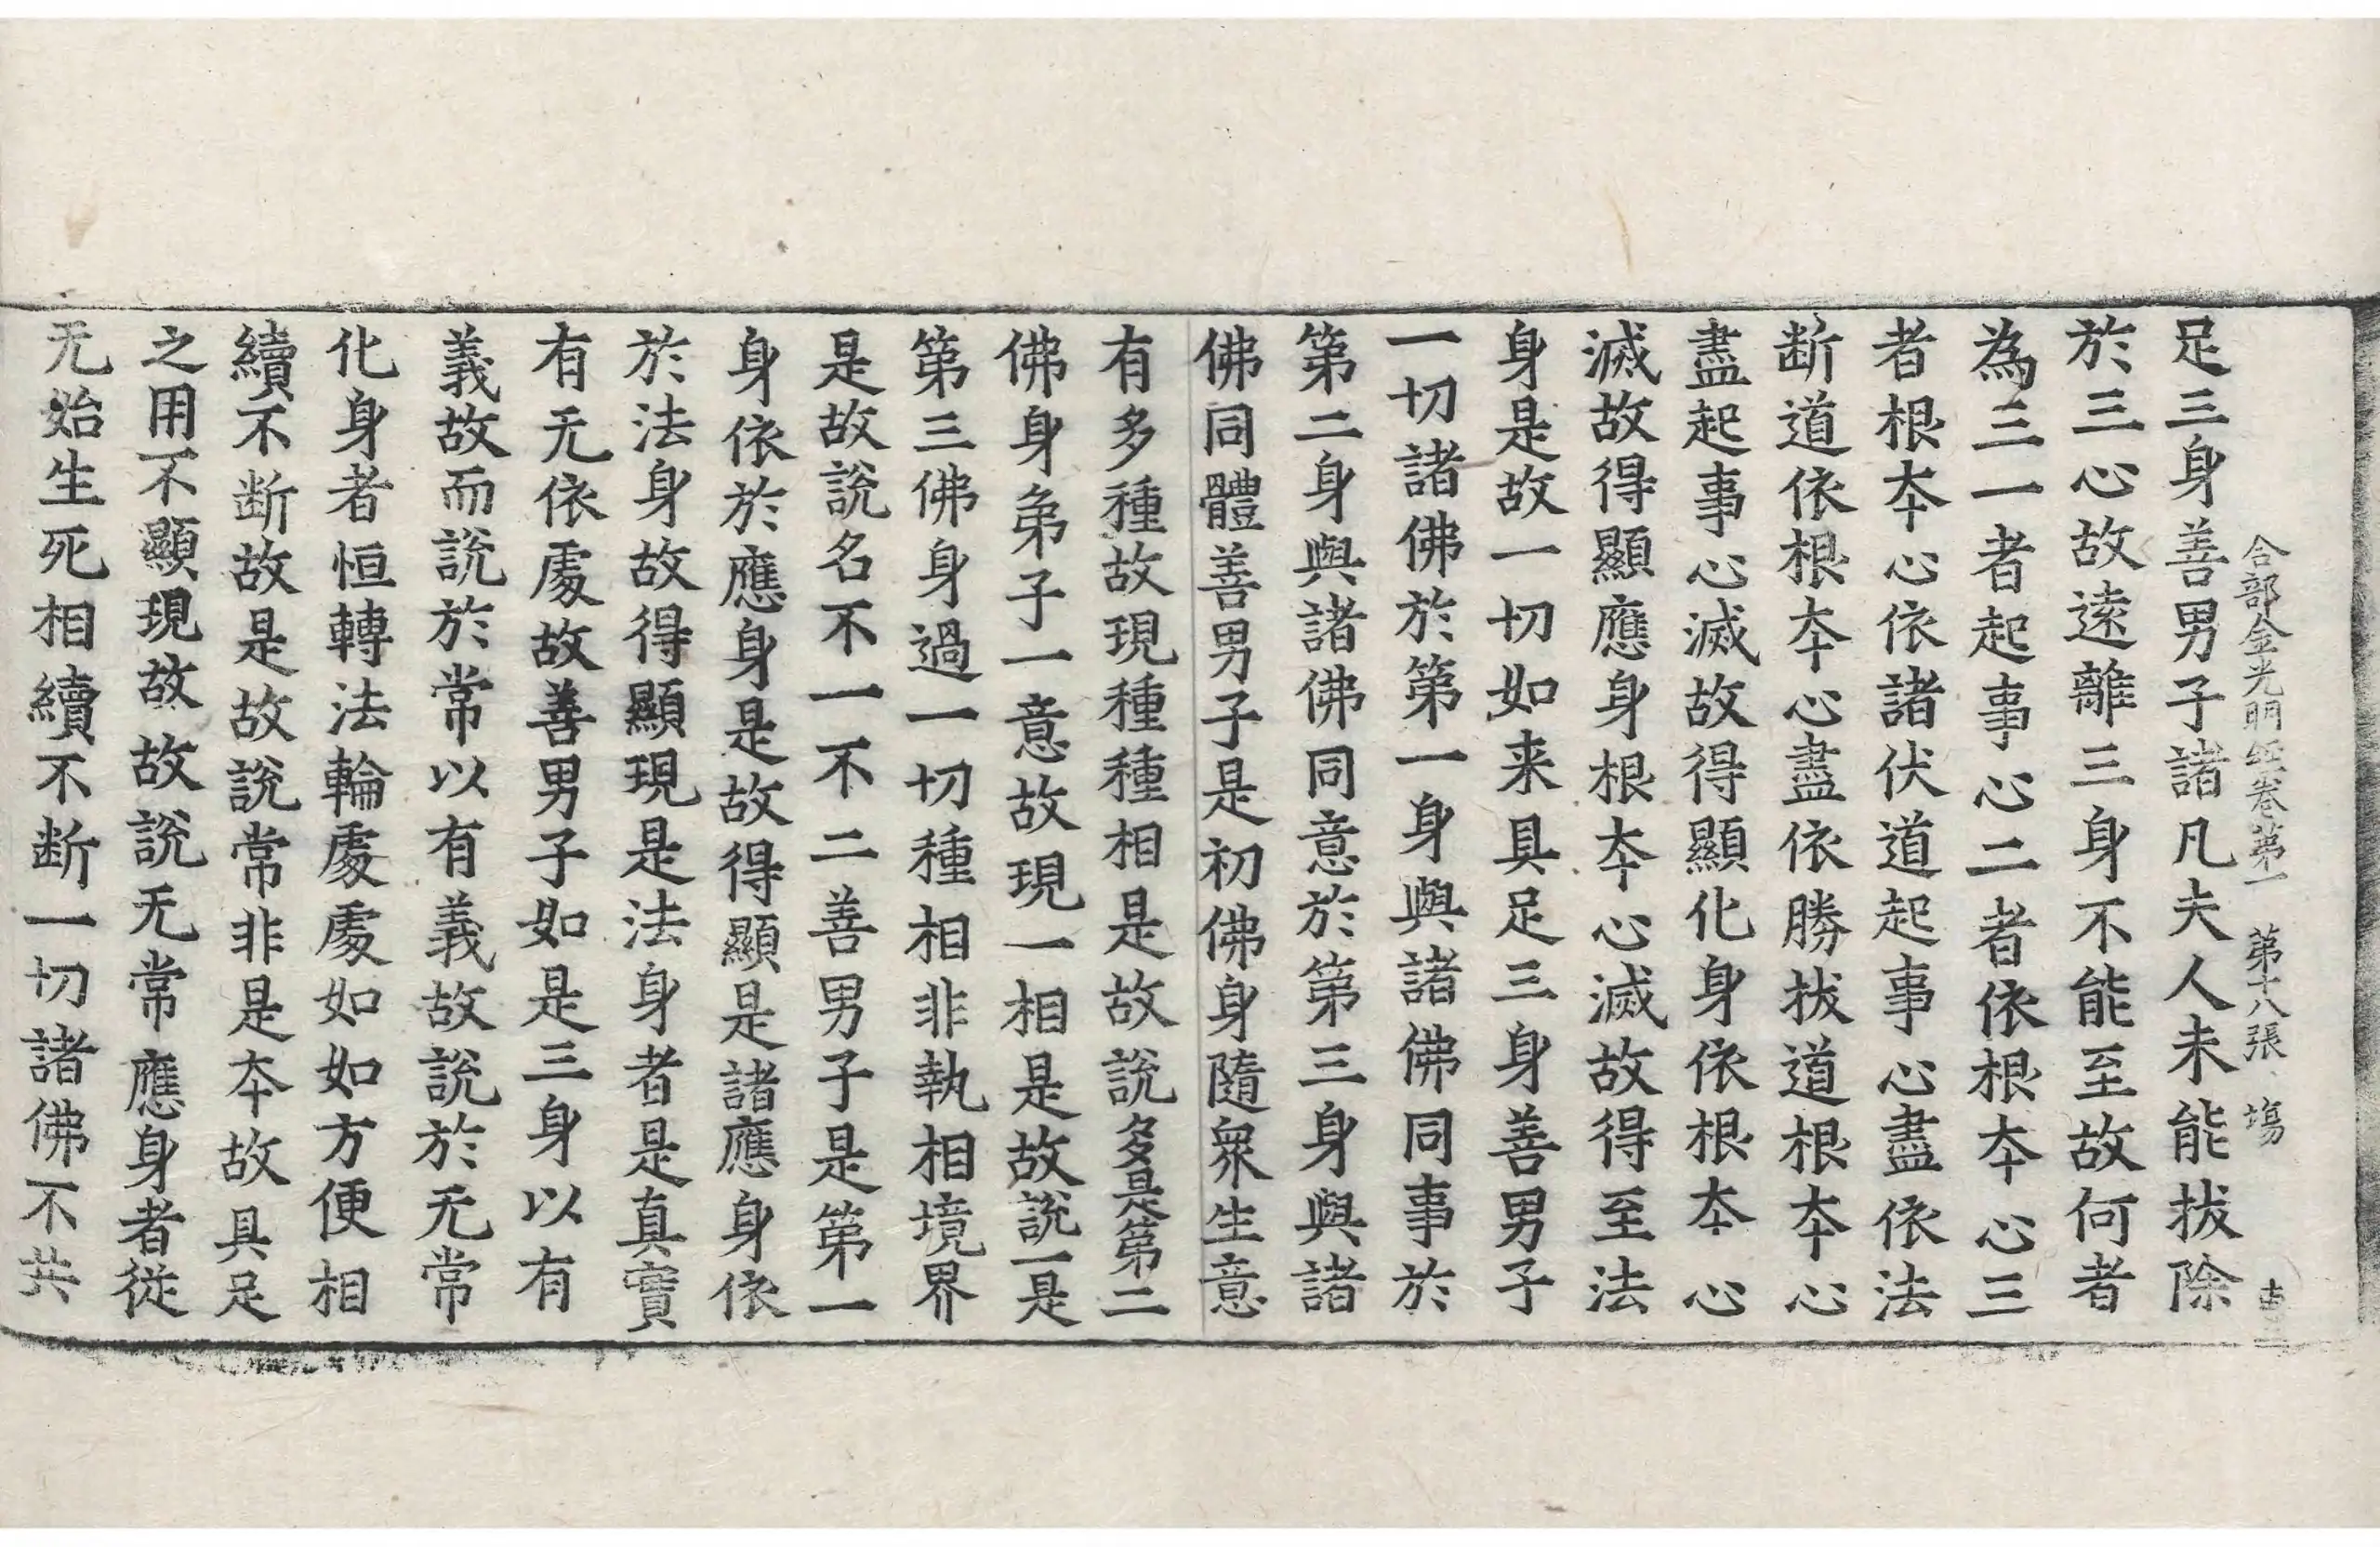 合部金光明經卷第一 第十八張 塲
足三身善男子諸凡夫人未能拔除
於三心故遠離三身不能至故何者
為三一者起事心二者依根夲心三
者根夲心依諸伏道起事心盡依法
断道依根夲心盡依勝拔道根夲心
盡起事心滅故得顯化身依根夲心
滅故得顯應身根夲心滅故得至法
身是故一切如来具足三身善男子
一切諸佛於第一身與諸佛同事於
第二身與諸佛同意於第三身與諸
佛同體善男子是初佛身隨衆生意
有多種故現種種相是故說多是第二
佛身弟子一意故現一相是故說一是
第三佛身過一切種相非執相境界
是故說名不一不二善男子是第一
身依於應身是故得顯是諸應身依
於法身故得顯現是法身者是真實
有无依處故善男子如是三身以有
義故而說於常以有義故說於无常
化身者恒轉法輪處處如如方便相
續不断故是故說常非是夲故具足
之用不顯現故故說无常應身者從
无始生死相續不断一切諸佛不共